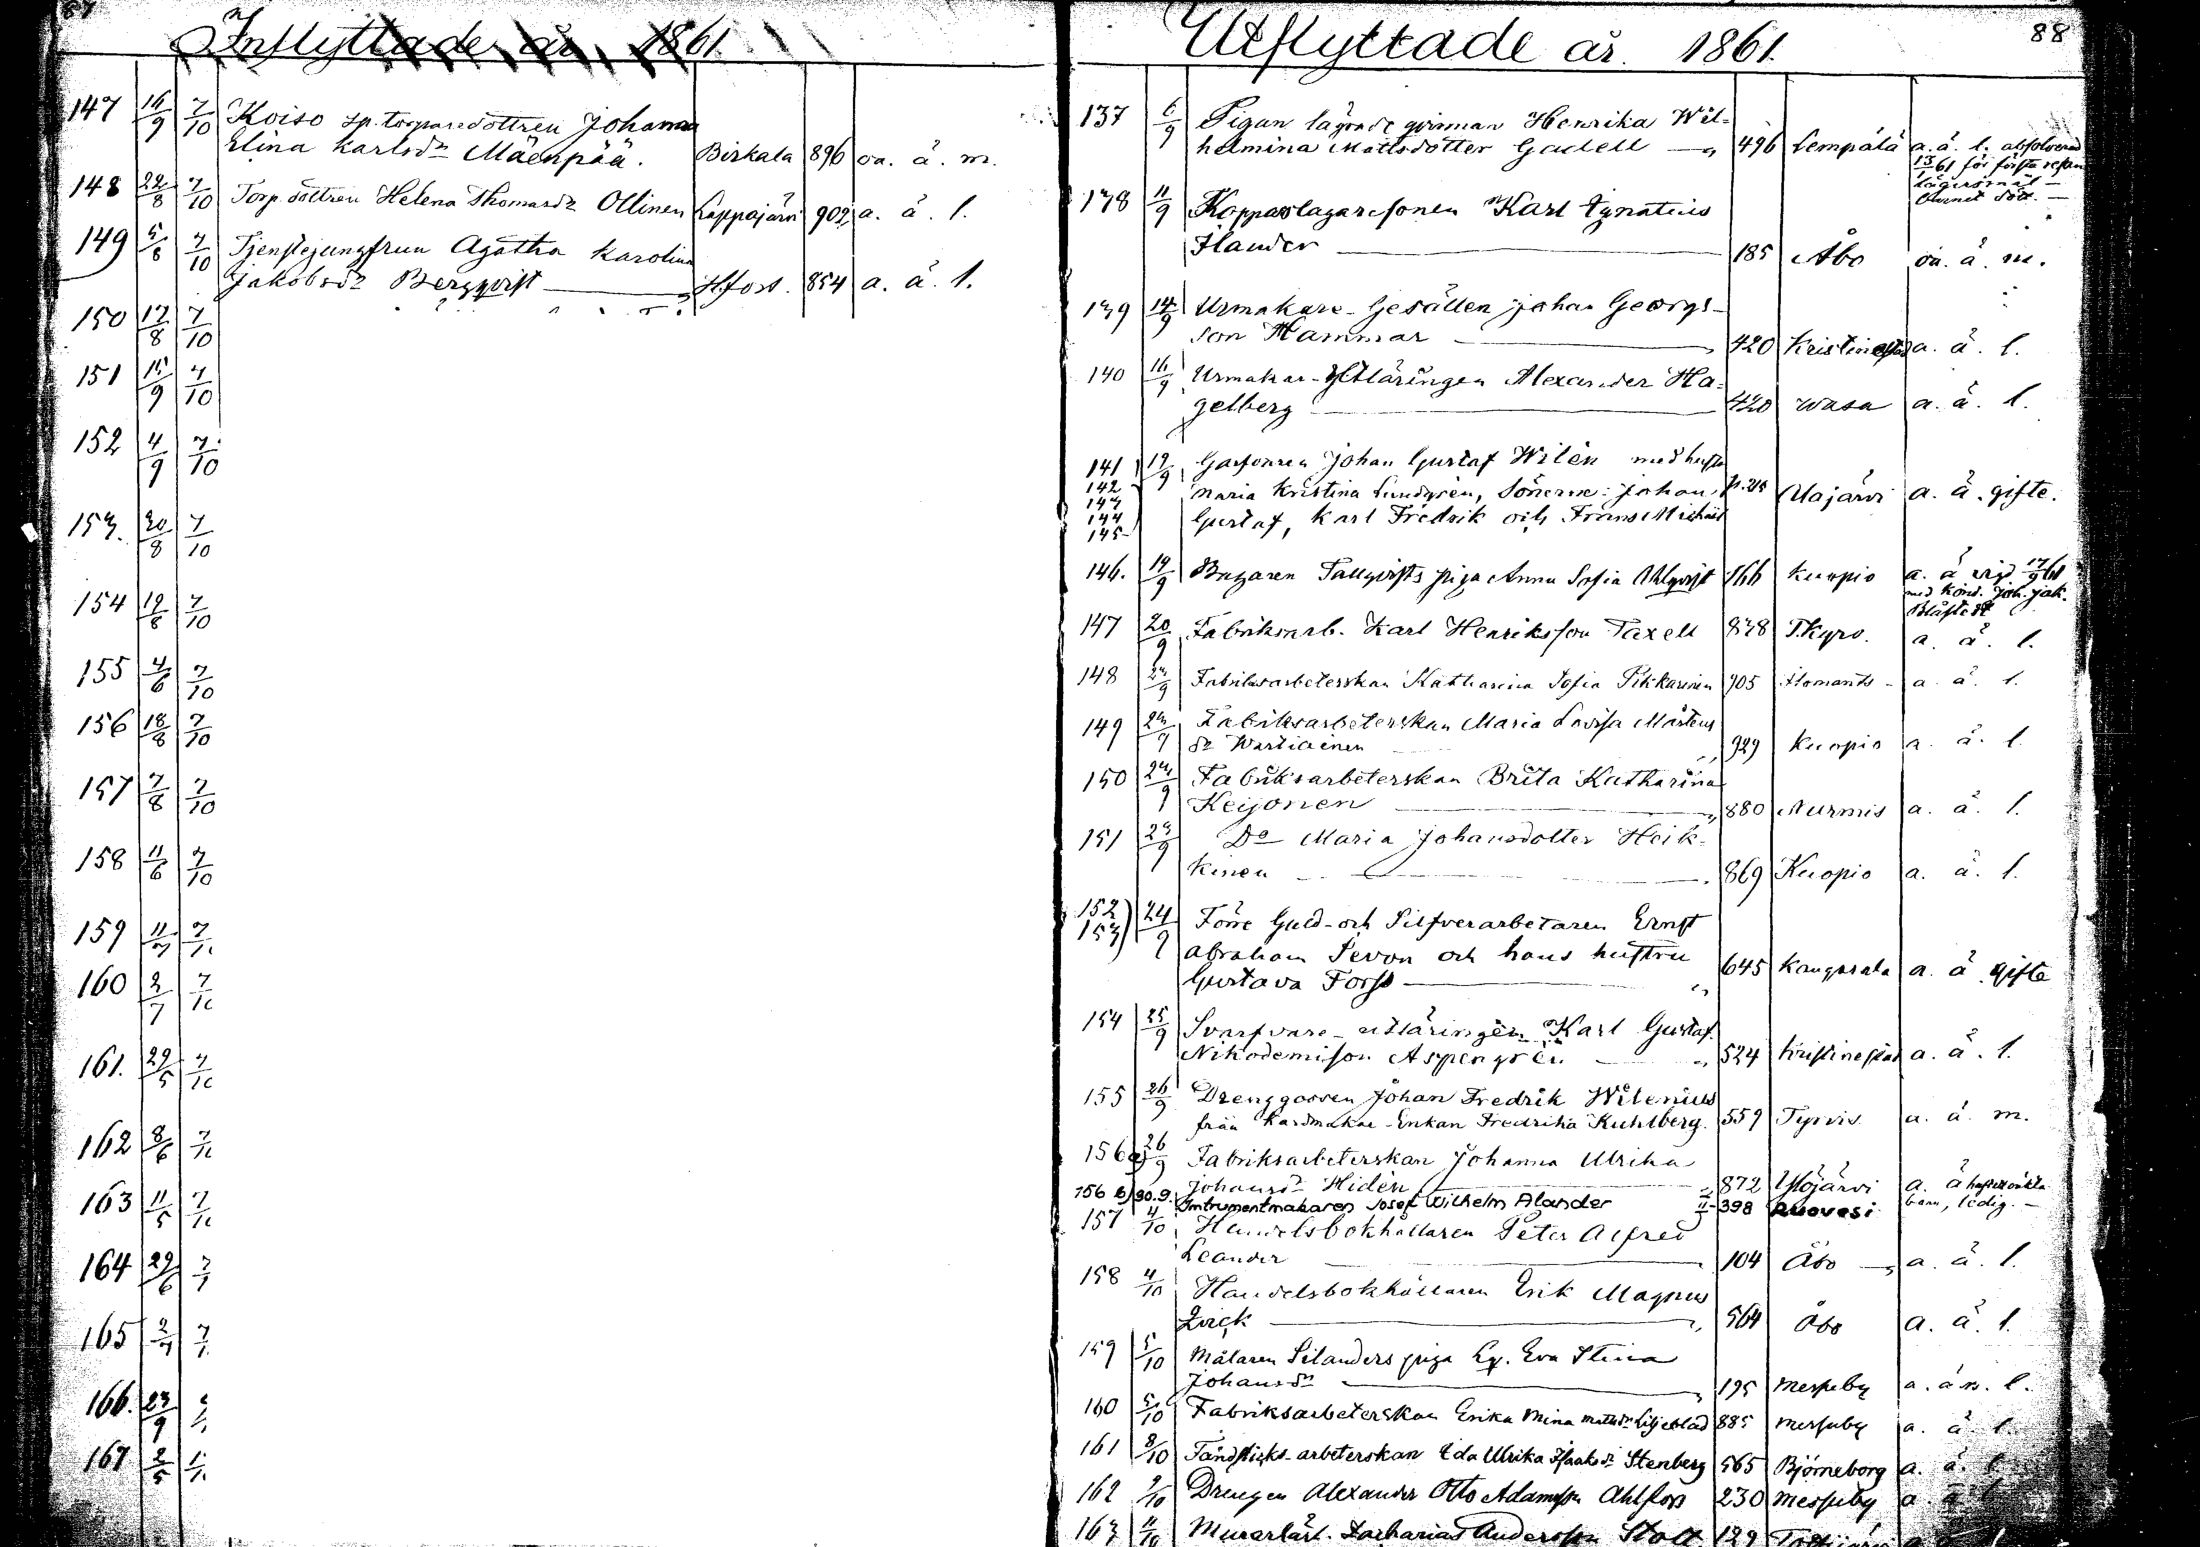 87
Inflyttade år 1861.
147 16/9 7/10 Koiso sp. torparedottren Johanna
Elina Karlsdr Mäenpää. Birkala 896 oa. ä. m.
148 22/8 7/10 Torp. dottren Helena Thomasdr Ollinen Lappajärvi 902 a. ä. l.
149 5/8 7/10 Tjenstejungfrun Agatha Karolina
Jakobsdr Bergqvist H.fors. 854 a. ä. l.
150 17/8 7/10
151 15/9 7/10
152 4/9 7/10
153. 20/8 7/10
154 19/8 7/10
155 4/6 7/10
156 18/8 7/10
157 7/8 7/10
158 11/6 7/10
159 11/7 7/1
160 2/7 7/10
161. 29/5 7/10
162 8/6 7/10
163 11/5 7/10
164 29/6 7/1
165 2/7 7/1
166. 23/9
167 2/5
88
Utflyttade år 1861.
137 6/9 Pigan lägrade qvinnan Henrika Wil-
helmina Mattsdotter Gadell 496 Lempälä a. ä. l. absolverad
13/1 61 för första resan
lägersmål
138 11/9 Kopparslagaresonen Karl Ignatius
Ilander 185 Åbo oa. ä. m.
139 14/9 Urmakare-Gesällen Johan Georgs-
son Hammar 420 Kristinestad a. ä. l.
140 16/9 Urmakar-Utläringen Alexander Ha-
gelberg 420 Wasa a. ä. l.
141 19/9 Garfvaren Johan Gustaf Wilén med hustr
142 Maria Kristina Lundgrén, Sönerne: Johan Alajärvi a. ä. gifte.
143
144 Gustaf, Karl Fredrik och Frans Michael
145
146. 19/9 Bagaren Tallqvists piga Anna Sofia Ahlqvist 166 Kuopio a. ä. vigd 17/9 61
med Kond. Joh. Jak.
Blåfield
147 20/9 Fabriksarb. Karl Henriksson Taxell 878 T.Kyro. a. ä. l.
148 23/9 Fabriksarbeterskan Katharina Sofia Pikkarinen 905 Ilomants a. ä. l.
149 23/9 Fabriksarbeterskan Maria Lovisa Mårtens
dr Wartiainen 929 Kuopio a. ä. l.
150 23/9 Fabriksarbeterskan Brita Katharina
Keijonen 880 Nurmis a. ä. l.
151 23/9 Do Maria Johansdotter Heik-
kinen 869 Kuopio a. ä. l.
152 24/9 Förre Guld- och Silfverarbetaren Ernst
153
Abraham Sevon och hans hustru
Gustava Forss 645 Kangasala a. ä. gifte
154 25/9 Svarfvare-utläringen Karl Gustaf
Nikodemisson Aspengrén 524 Kristinestad a. ä. l.
155 26/9 Drenggossen Johan Fredrik Wilenius
från Kardmakar-Enkan Fredrika Kuhlberg. 559 Tyrvis a. ä. m.
156 a) 26/9 Fabriksarbeterskan Johanna Ulrika
Johansdr Hidén 872 Ylöjärvi a. ä. haft oäkta
156 b) 30.9. Instrumentmakaren Josef Wilhelm Alander 398 Ruovesi barn, ledig.
157 4/10 Handelsbokhållaren Peter Alfred
Leander 104 Åbo a. ä. l.
158 4/10 Handelsbokhållaren Erik Magnus
Zvick 564 Åbo a. ä. l.
159 5/10 Målaren Silanders piga Eva Stina
Johansdr 195 Messuby a. ä. n. l.
160 5/10 Fabriksarbeterskan Erika Mina Mattsdr Liljeblad 885 Messuby a. ä. l.
161 8/10 Tändsticks-arbeterskan Eda Ulrika Isaksdr Stenberg 565 Björneborg a. ä. l.
162 9/10 Drengen Alexander Otto Adamsson Ahlfors 230 Messuby a. ä.
163 11/10 Murarlärl. Zacharias Andersson Stolt 129